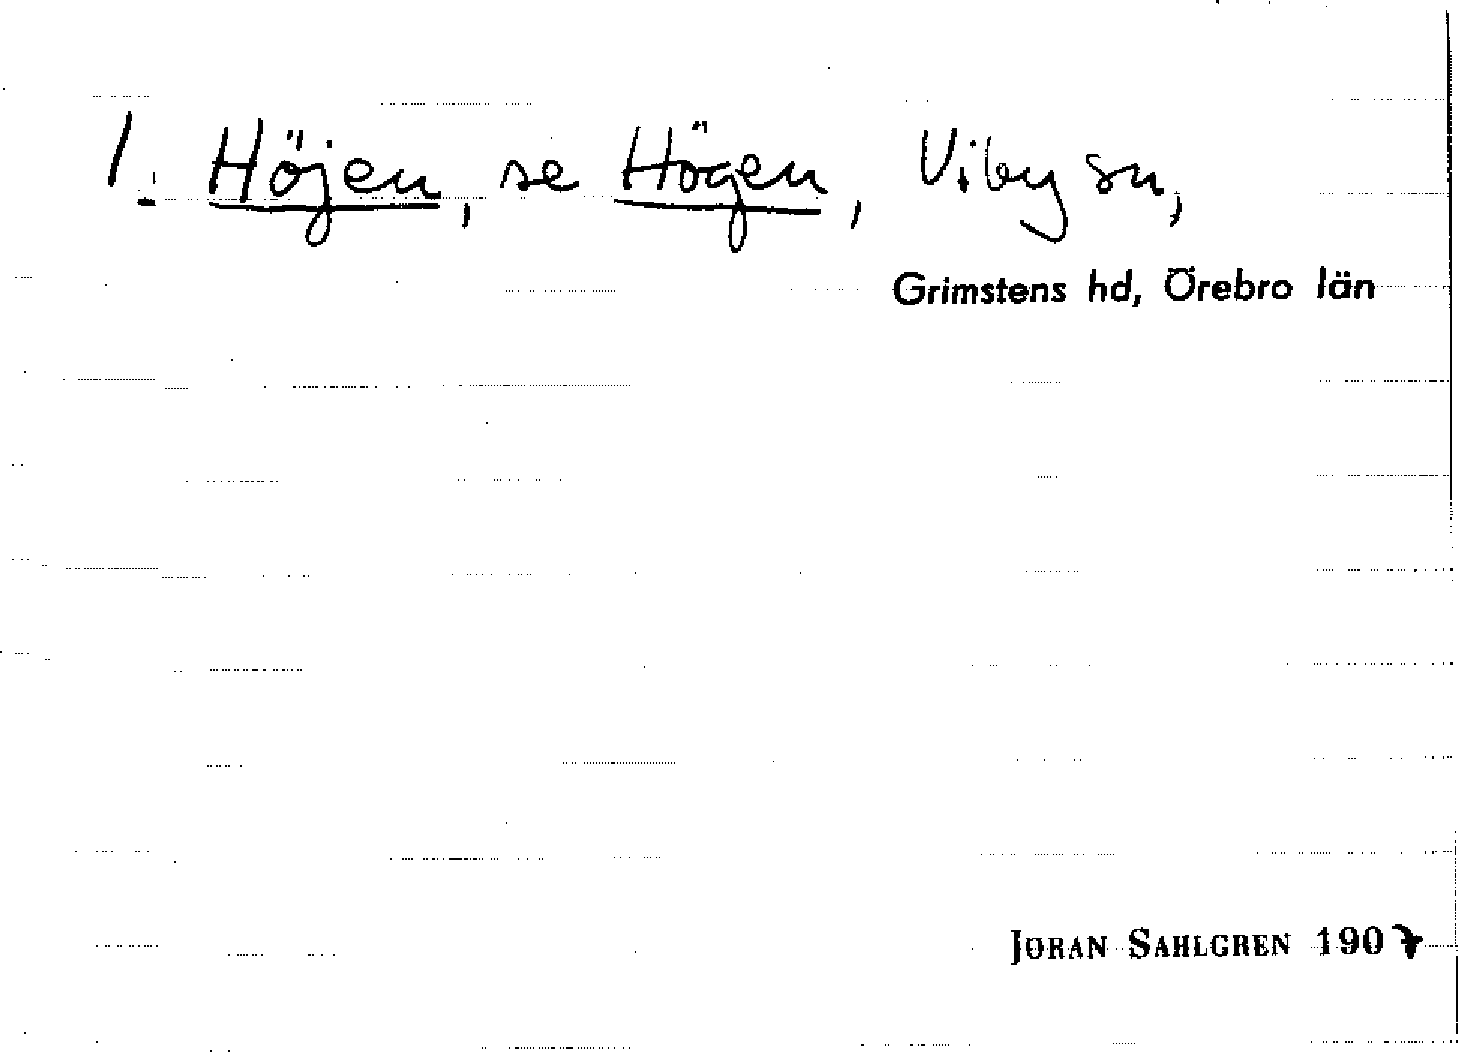 1. Höjen, se Högen, Viby sn,
Grimstens hd, Örebro län
JORAN SAHLGREN 1907